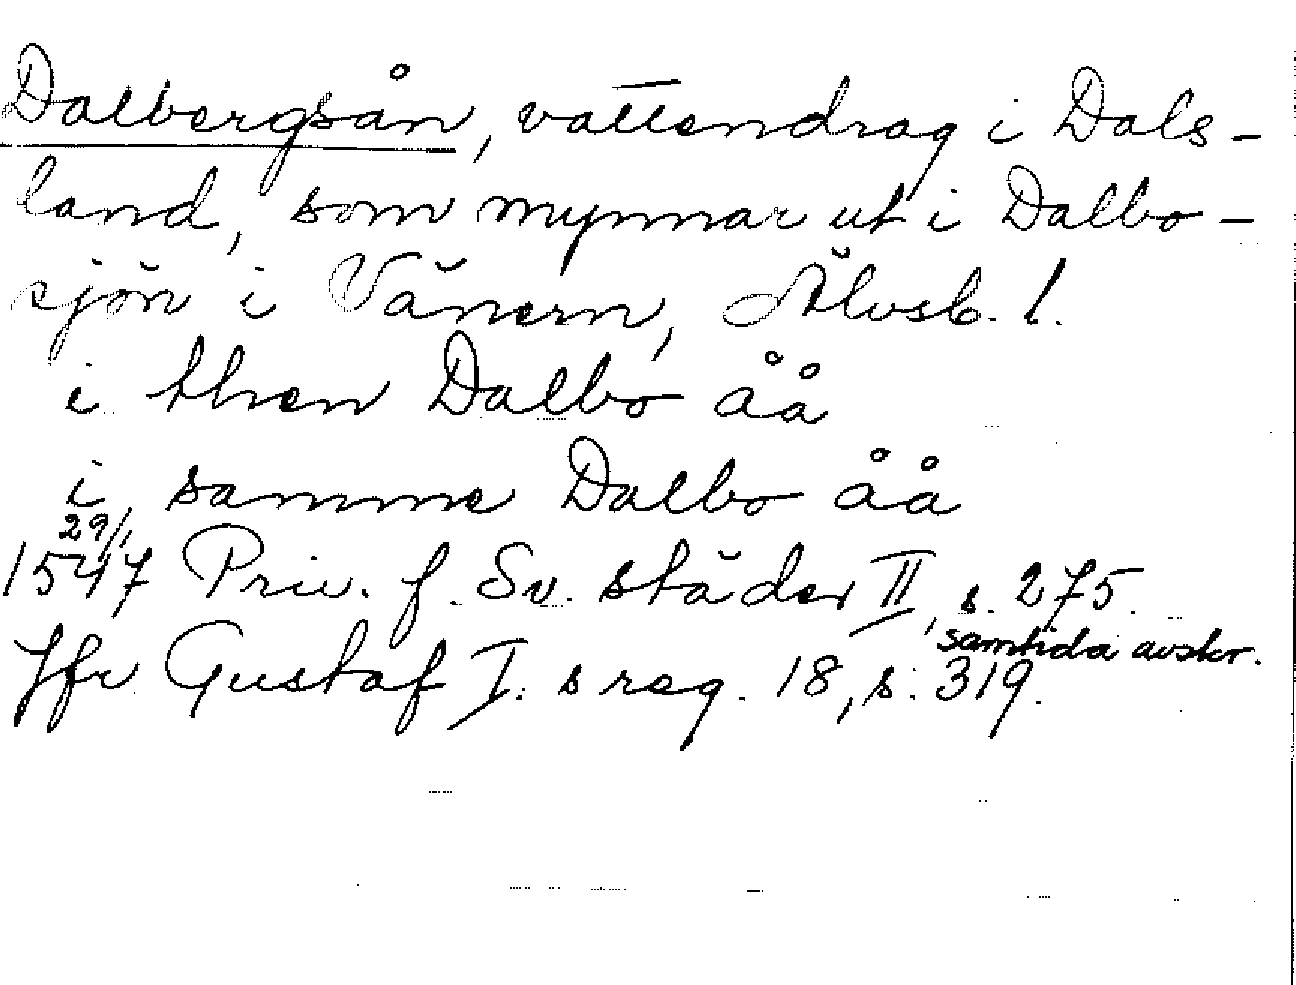 Dalbergsån, vattendrag i Dals-
land, som mynnar ut i Dalbo-
sjön i Vänern, Älvsb. l.
i then Dalbo åå
i samme Dalbo åå
29/1
1547 Priv. f. Sv. städer II, s. 275.
samtida avskr.
Jfr Gustaf I:s reg. 18, s. 319.